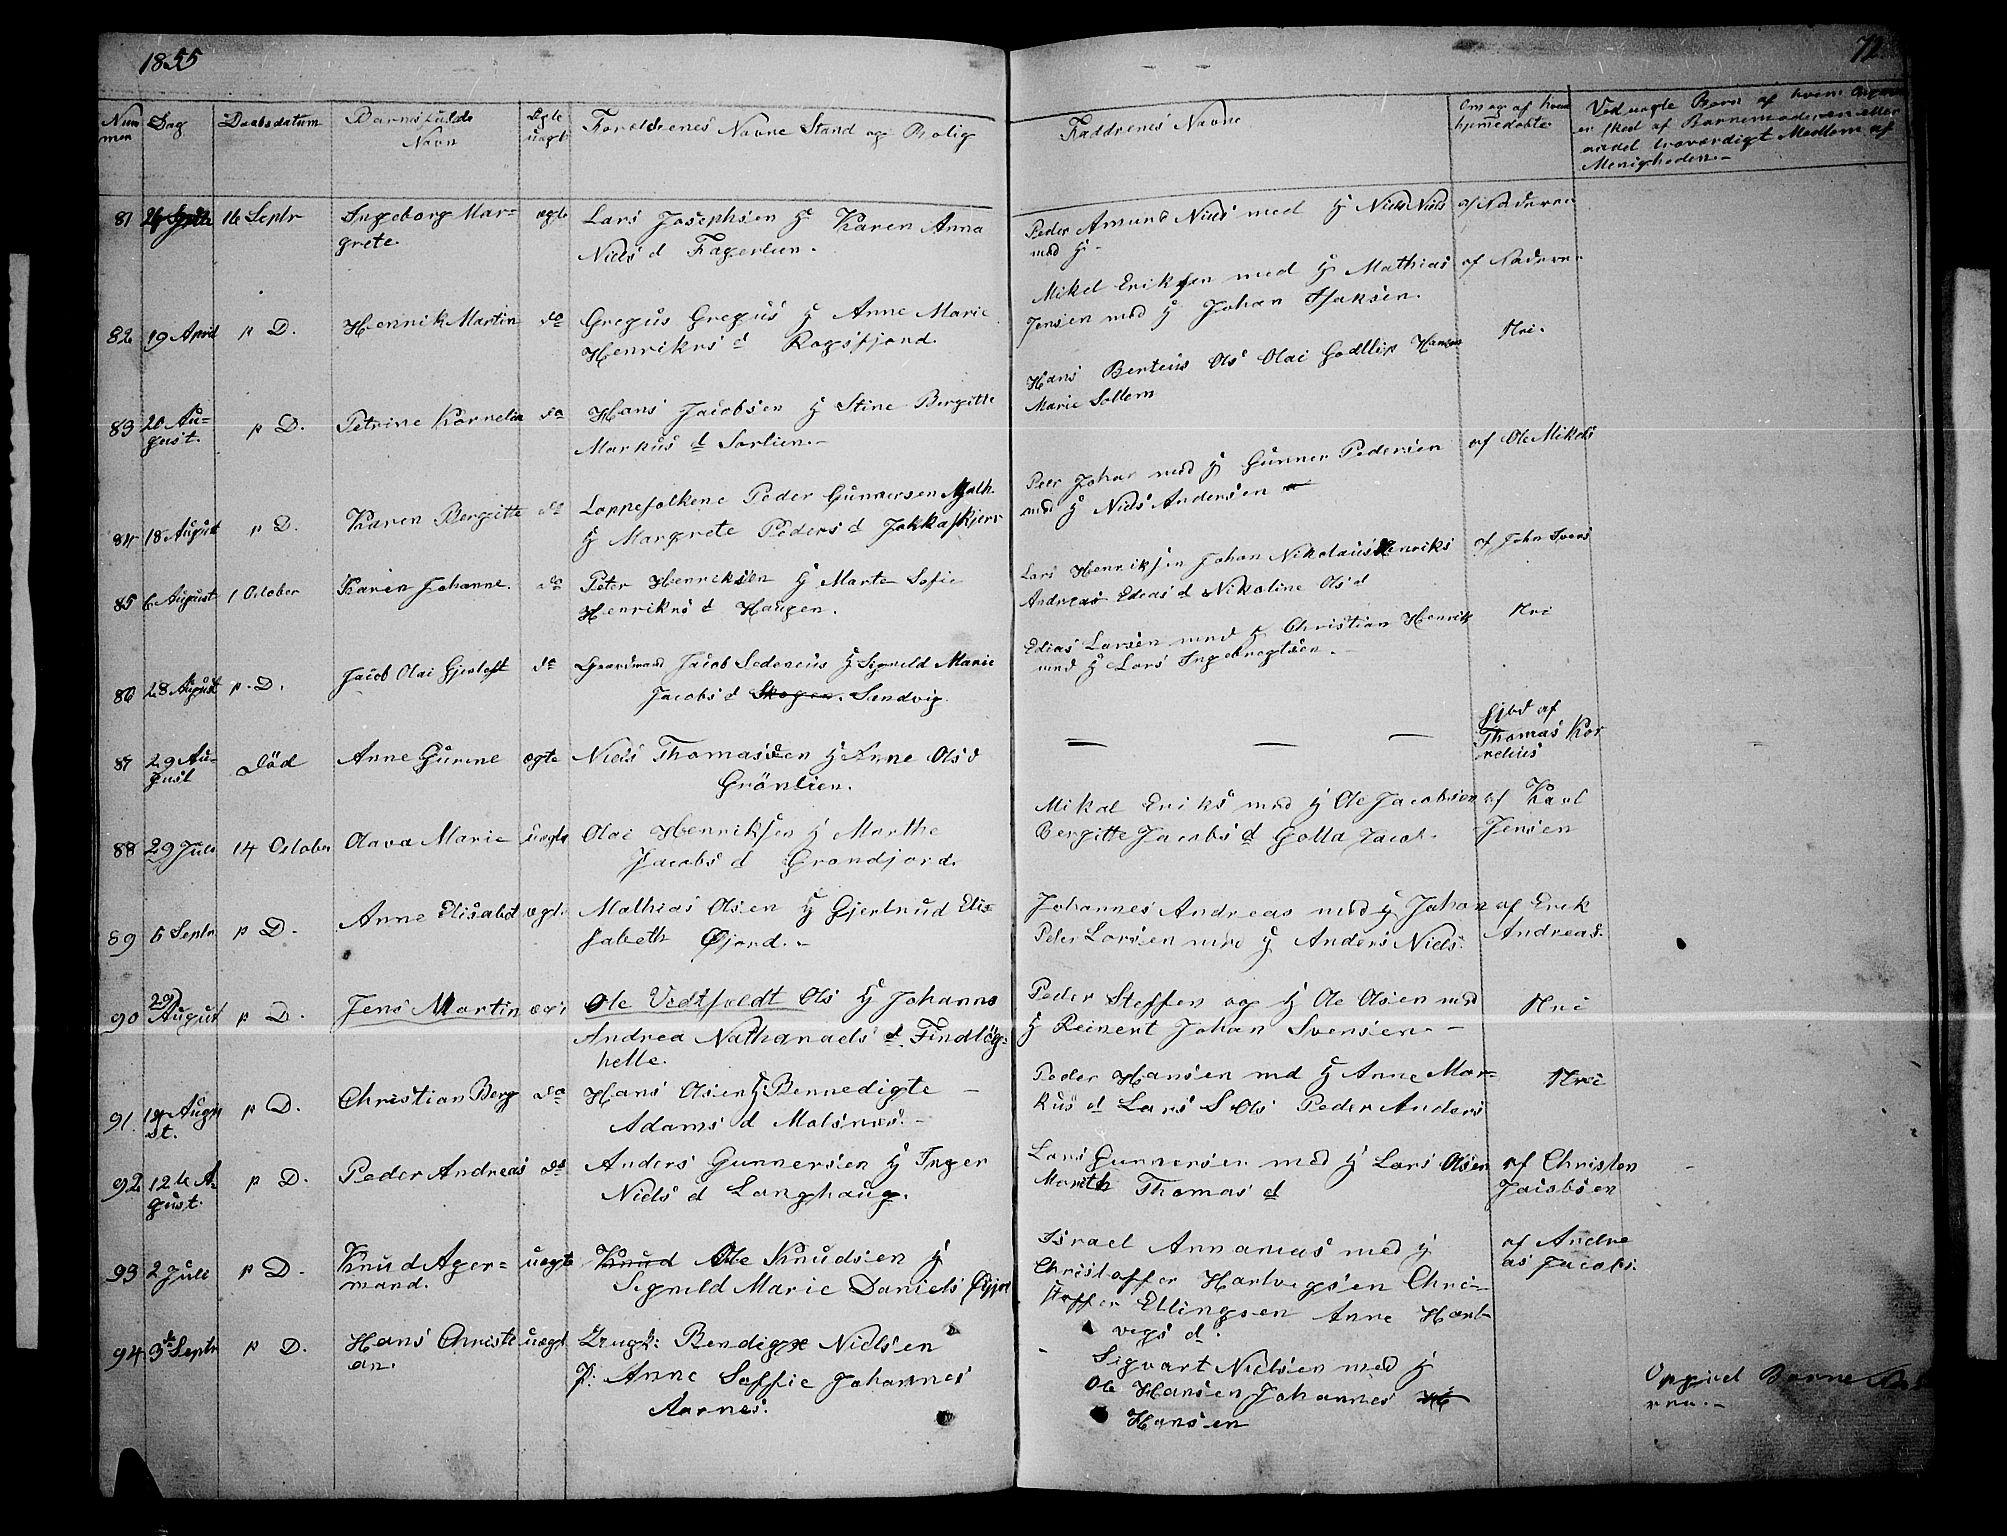 1855
72
Num
mer
Dag
Daabsdatum
Barnsfulde
Navn
Ægte
uægt
Foreldrenes Navne Stand og Bolig
Faddrenes Navne
Om og af hvem
hjemedøbte
Ved uægte Børn af hvem
er skeet af Barnemoderen eller
andet troværdigt Medlem af
Menigheden.-
81 16 Septr Ingeborg Mar= ægte Lars Josephsen H Karen Anna
grete. Niels d Fagerlien.
Peder Amund Niels med H Niels Niels
med H-
82 19 April p D. Henrik Martin do Gregus Gregus H Anne Marie
Henriks d Rogsfjord.
Mikel Eriksen med H Mathias
Jensen med H Johan Isaksen.
83 20 Au=
gust. p D. Petrine Kornelia do Hans Jacobsen H Stine Bergitte
Markus d Sørlien.-
Hans Berteus Ols Olai Godtlip Hansen
Marie Soltem
84 18 August p D. Karen Bergitte do Lappefolkene Peder Gunnersen Math
H Margrete Peders d Jokkaskjerr
Peer Johan med H Gunner Pedersen af Ole Mikels
med H Niels Andersen
85 6 August 1 October Karen Johanne. do Peter Henriksen H Marte Sofie
Henriks d Haugen.
Lars Henriksen Johan Nikolaus Henriks af John Svens
Andreas Edias d Nikoline Ols d
86 28 August p. D. Jacob Olai Gjertoft do Gaardmand Jacob Sedeneus H Signeld Marie
Jacobs d Skogen. Sandvig.
Edias Larsen med H Christian Henrik
med H Lars Ingebregtsen.-
87 29 Au=
gust Död Anne Gurine ægte Niels Thomassen H Anne Ols d
Grönlien.
— — —
af
Thomas Kor
nelius
88 29 Juli 14 October Olava Marie uægte Olai Henriksen H Marthe
Jacobs d Grandjord.
Mikal Eriks med H Ole Jacobsen af Karl
Bergitte Jacobs d Golla Jacob. Jensen
89 6 Septr p D. Anne Elisabet ægte Mathias Olsen H Gjertrud Eli=
sabeth Øjord.-
Johannes Andreas med H Johan af Erik
Peder Larsen med H Anders Niels. Andreas.
90 29
August p D. Jens Martin Ole Vedtfeldt Ols H Johanna
Andrea Nathanaels d. Findlög=
helle.
Peder Steffen og H Ole Olsen med
H Reinert Johan Svensen.-
91. p D. Christian Berg do Hans Olsen H Bennedigte —
Adams d Malsnæs.-
Peder Hansen med H Anne Mar=
kus d Lars S Ols Peder Anders
92 12te A
gust. p D. Peder Andreas do Anders Gunnersen H Inger
Niels d Langhaug.
Lars Gunnersen med H Lars Olsen af Christen
Marith Thomas d Jacobsen
93 2 Juli p D. Knud Ager=
mand. uægte Knud Ole Knudsen H
Signeld Marie Daniels Øjord
Israel Annanias med H af Andre
Christoffer Hartvigsen Chri= as Jacobs.
stoffer Ellingsen Anne Hart=
vigs d.
94 3 Septr p D. Hans Christi
an. uægt Ungk: Bendigx Nielsen
P: Anne Soffie Johannes
Aarnes.
Sigvart Nielsen med H
Ole Hansen Johannes
Hansen
Opgivet Barne